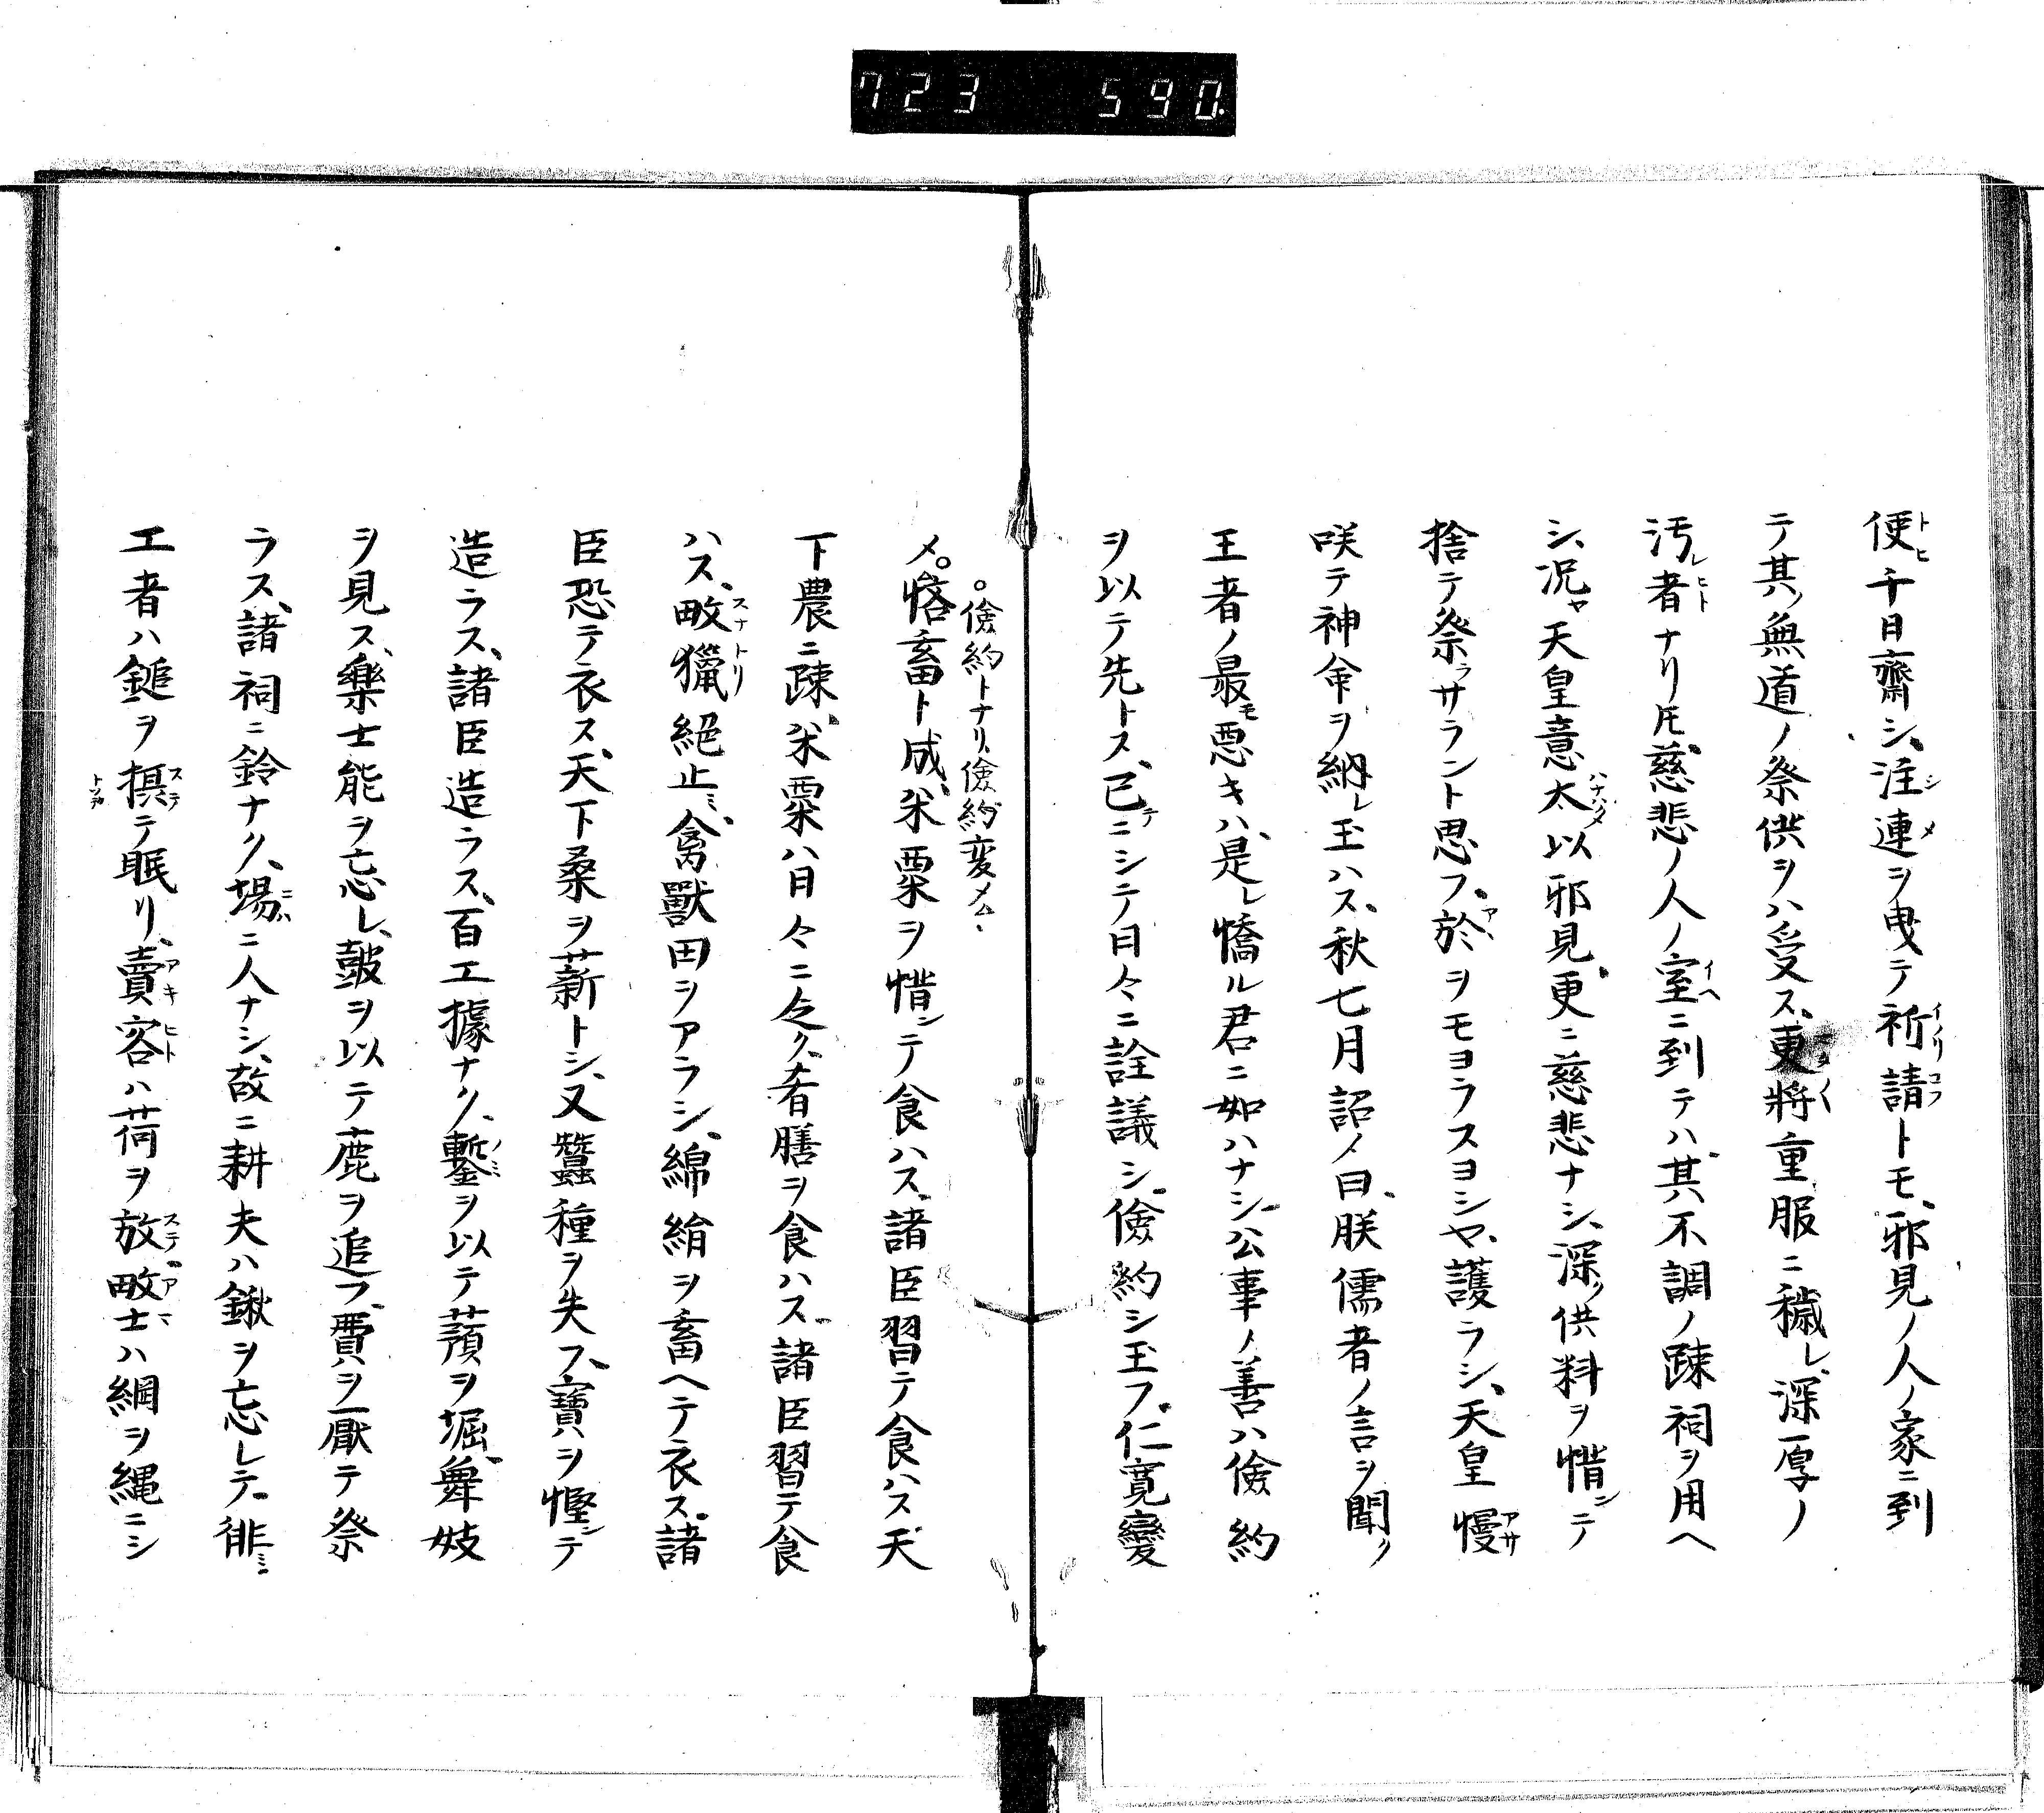 723 590.
便千日齋シ、注連ヲ曳テ祈請トモ、邪見ノ人ノ家ニ到
テ其ノ無道ノ祭供ヲハ受ス、更將重服ニ穢レ深厚ノ
汚レ者ナリ𪜈、慈悲ノ人ノ室ニ到テハ、其不調ノ疎祠ヲ用ヘ
シ、况ヤ天皇意太以邪見、更ニ慈悲ナシ、深ク供料ヲ惜シテ
捨テ祭ラサラント思フ、於ヲモヨラスヨシヤ、護ラシ、天皇慢
咲テ神命ヲ納レ玉ハス、秋七月詔メ曰、朕儒者ノ言ヲ聞ク
王者ノ最モ悪キハ、是レ憍ル君ニ如ハナシ、公事ノ善ハ儉約
ヲ以テ先トス、已テニシテ日々ニ詮議シ、儉約シ玉フ、仁寛變
。儉約トナリ、儉約変メ
メ。悋畜ト成、米粟ヲ惜シテ食ハス、諸臣習テ食ハス、天
下農ニ疎、米粟ハ日々ニ乏ク、肴膳ヲ食ハス、諸臣習テ食
ハス、畋獵絕止ミ、禽獸田ヲアラシ、綿絹ヲ畜ヘテ衣ス、諸
臣恐テ衣ス、天下桑ヲ薪トシ、又蠶種ヲ失フ、寶ヲ慳シテ
造ラス、諸臣造ラス、百工據ナク、鏨ヲ以テ蕷ヲ堀、舞妓
ヲ見ス、樂士能ヲ忘レ、皷ヲ以テ鹿ヲ追フ、費ヲ厭テ祭
ラス、諸祠ニ鈴ナク、場ニ人ナシ、故ニ耕夫ハ鍬ヲ忘レテ、徘
工者ハ鎚ヲ摂テ眠リ、賣客ハ荷ヲ放、畋士ハ綱ヲ縄ニシ